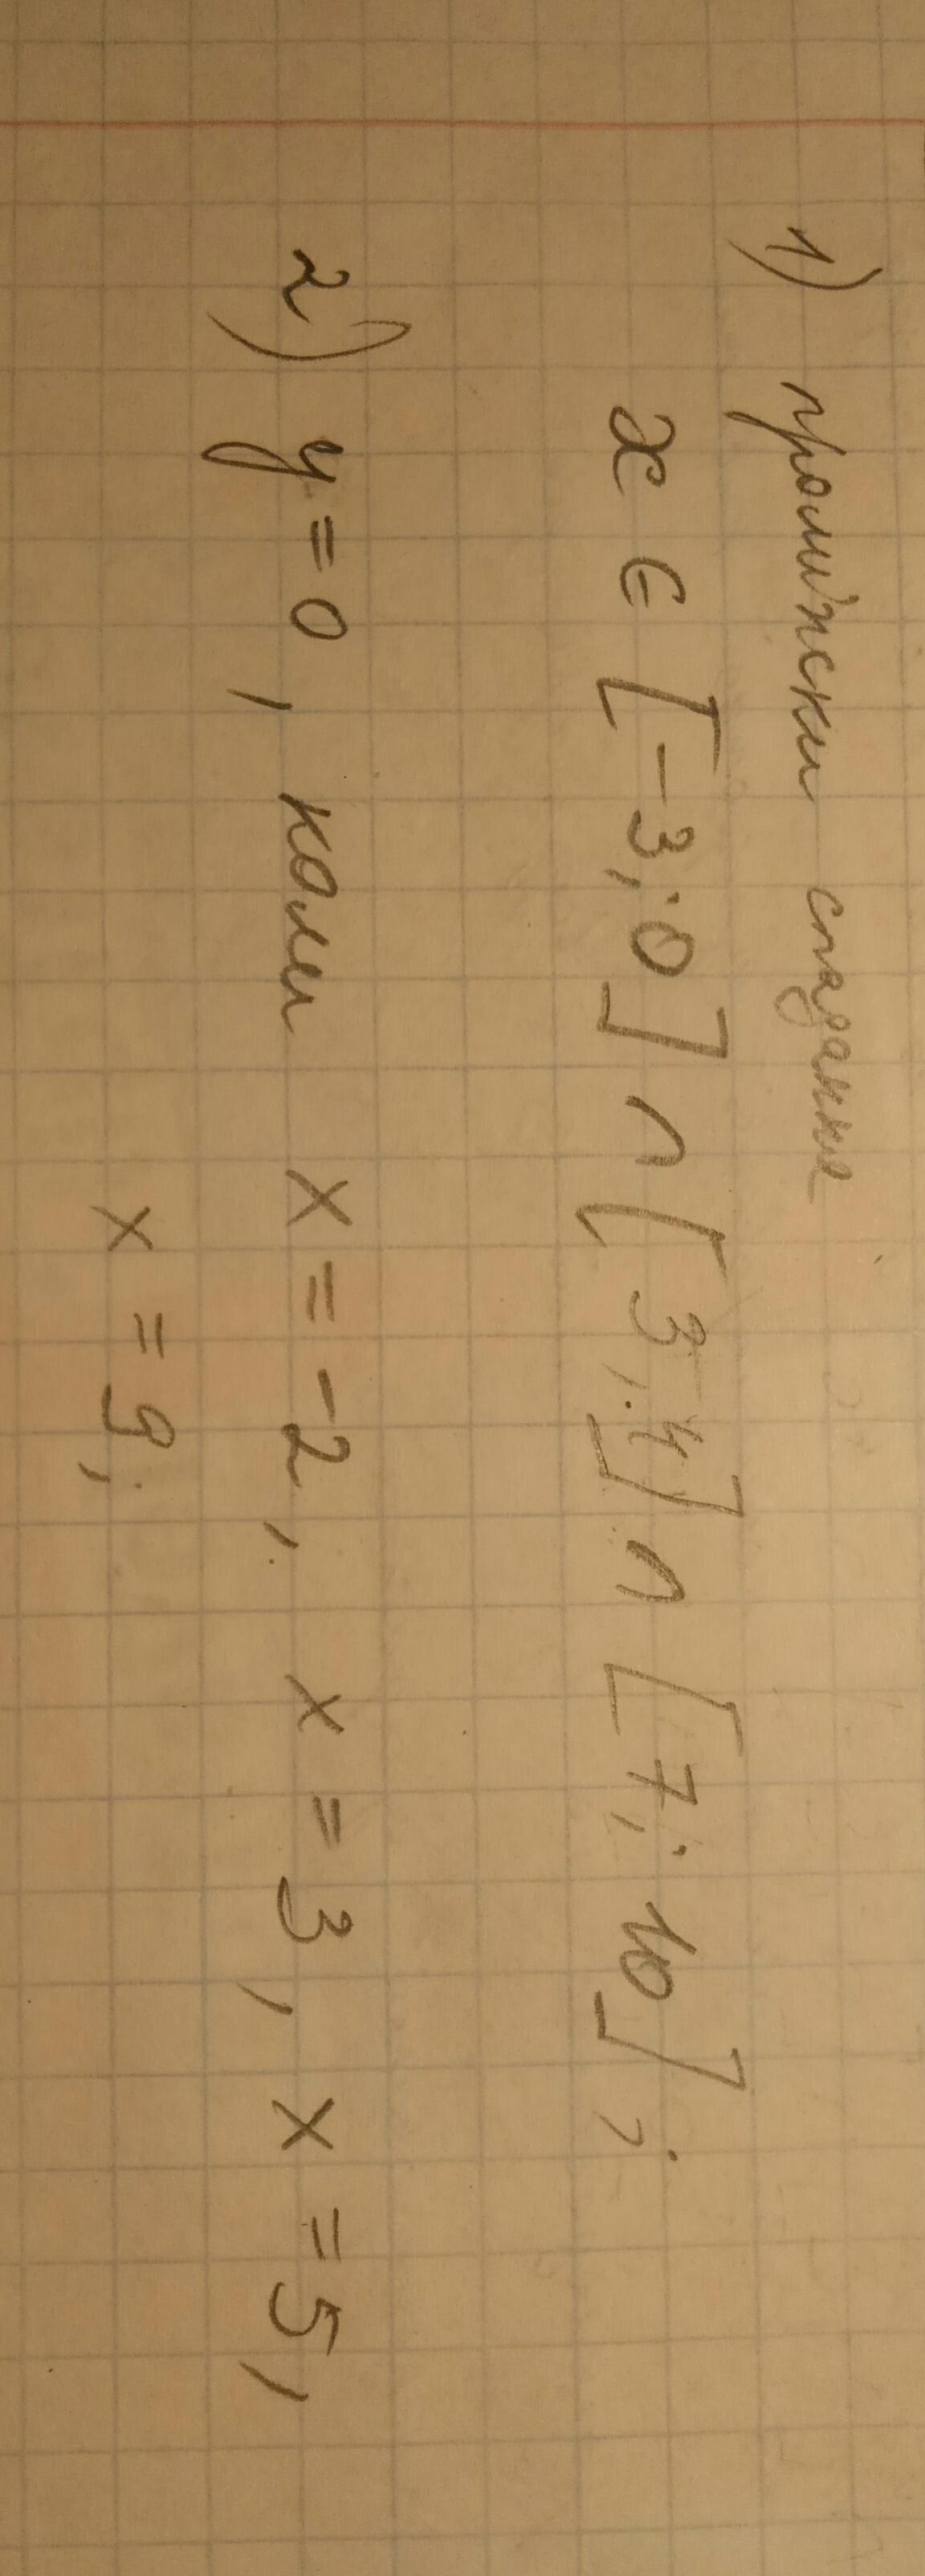 1) проміжки спадання
x ∈ [-3; 0] ∩ [3; 4] ∩ [7; 10];
2) y = 0, коли x = -2, x = 3, x = 5,
x = 9;